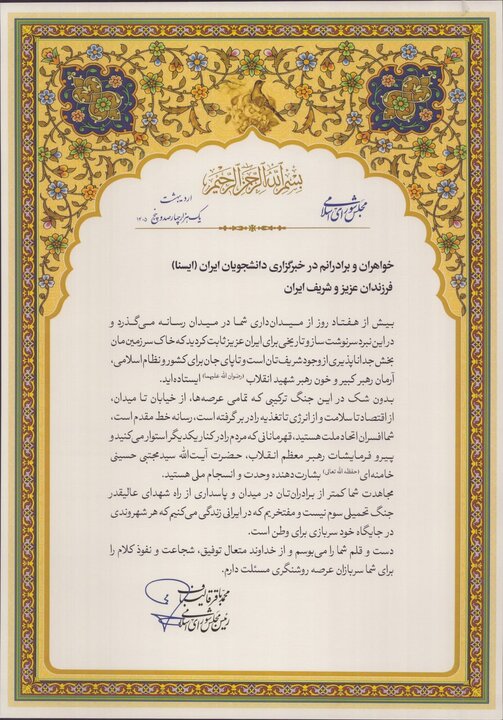 بسم الله الرحمن الرحیم
مجلس شورای اسلامی
اردیبهشت
یک‌هزار چهارصد و پنج ۱۴۰۵
خواهران و برادرانم در خبرگزاری دانشجویان ایران (ایسنا)
فرزندان عزیز و شریف ایران
بیش از هفتاد روز از میدان‌داری شما در میدان رسانه می‌گذرد و
در این نبرد سرنوشت ساز و تاریخی برای ایران عزیز ثابت کردید که خاک سرزمین مان
بخش جدانا‌پذیری از وجود شریف‌تان است و تا پای جان برای کشور و نظام اسلامی،
آرمان رهبر کبیر و خون رهبر شهید انقلاب (رضوان الله علیهما) ایستاده‌اید.
بدون شک در این جنگ ترکیبی که تمامی عرصه‌ها، از خیابان تا میدان،
از اقتصاد تا سلامت و از انرژی تا تغذیه را در بر گرفته است، رسانه خط مقدم است،
شما افسران اتحاد ملت هستید، قهرمانانی که مردم را در کنار یکدیگر استوار می‌کنید و
پیرو فرمایشات رهبر معظم انقلاب، حضرت آیت‌الله سیدمجتبی حسینی
خامنه‌ای (حفظه الله تعالی) بشارت‌دهنده وحدت و انسجام ملی هستید.
مجاهدت شما کمتر از برادران‌تان در میدان و پاسداری از راه شهدای عالیقدر
جنگ تحمیلی سوم نیست و مفتخریم که در ایرانی زندگی می‌کنیم که هر شهروندی
در جایگاه خود سربازی برای وطن است.
دست و قلم شما را می‌بوسم و از خداوند متعال توفیق، شجاعت و نفوذ کلام را
برای شما سربازان عرصه روشنگری مسئلت دارم.
محمدباقر قالیباف
رئیس مجلس شورای اسلامی